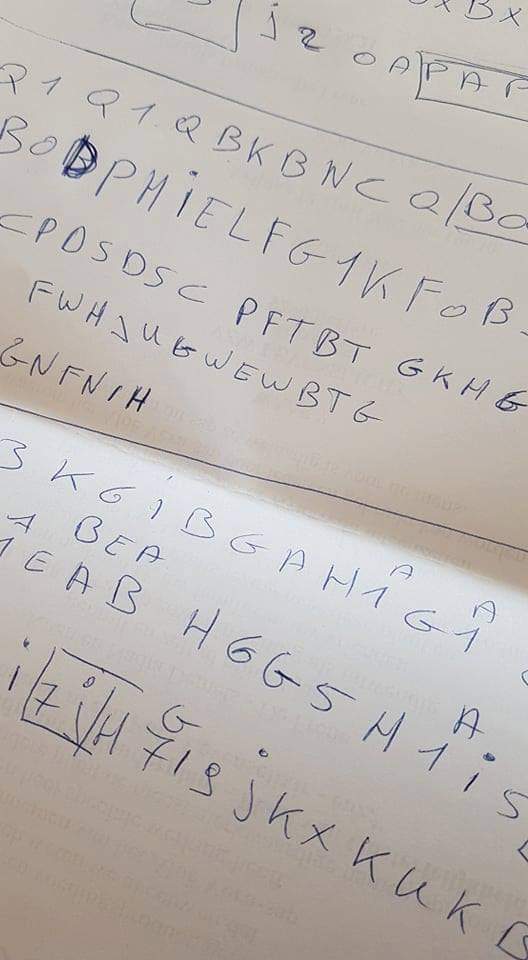 j z O A PAP
Q 1 Q 1 Q B K B N C Q / BO
B O D P M i E L F G 1 K F O B
C P D S D S C P F T B T G K H G
F W H J U G W E W B T G
G N F N I H
B K G i B G A H 1 A G 1 A
7 B E A
1 E A B H G G S H 1 A i S
i 7 i H 7 G 1 9 j K X K U K B